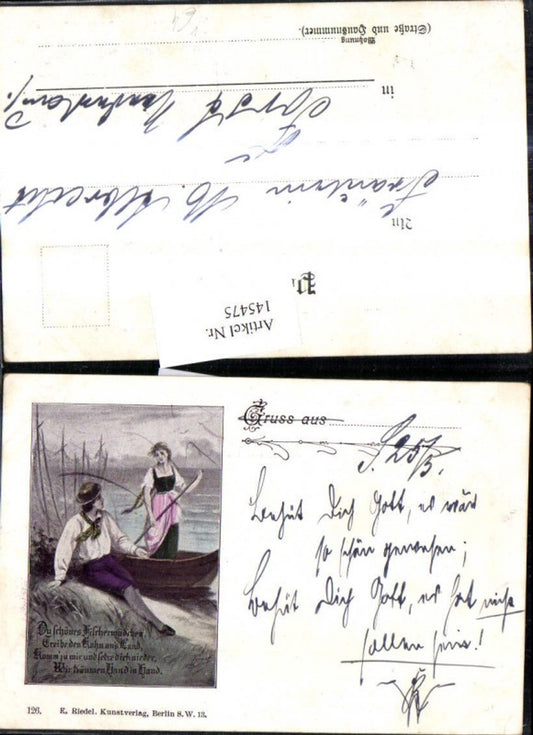 (Straße und Hausnummer).
Wohnung
in
Fräulein M. Albrecht
An
Artikel Nr.
145475
Gruss aus
S. 25/3.
Behüt Dich Gott, es wär
so schön gewesen;
Behüt Dich Gott, es hat nicht
sollen sein!
Du schönes Fischermädchen
Treibe den Kahn ans Land.
Komm zu mir und setze dich nieder,
Wir träumen Hand in Hand.
126. E. Riedel. Kunstverlag, Berlin S. W. 13.